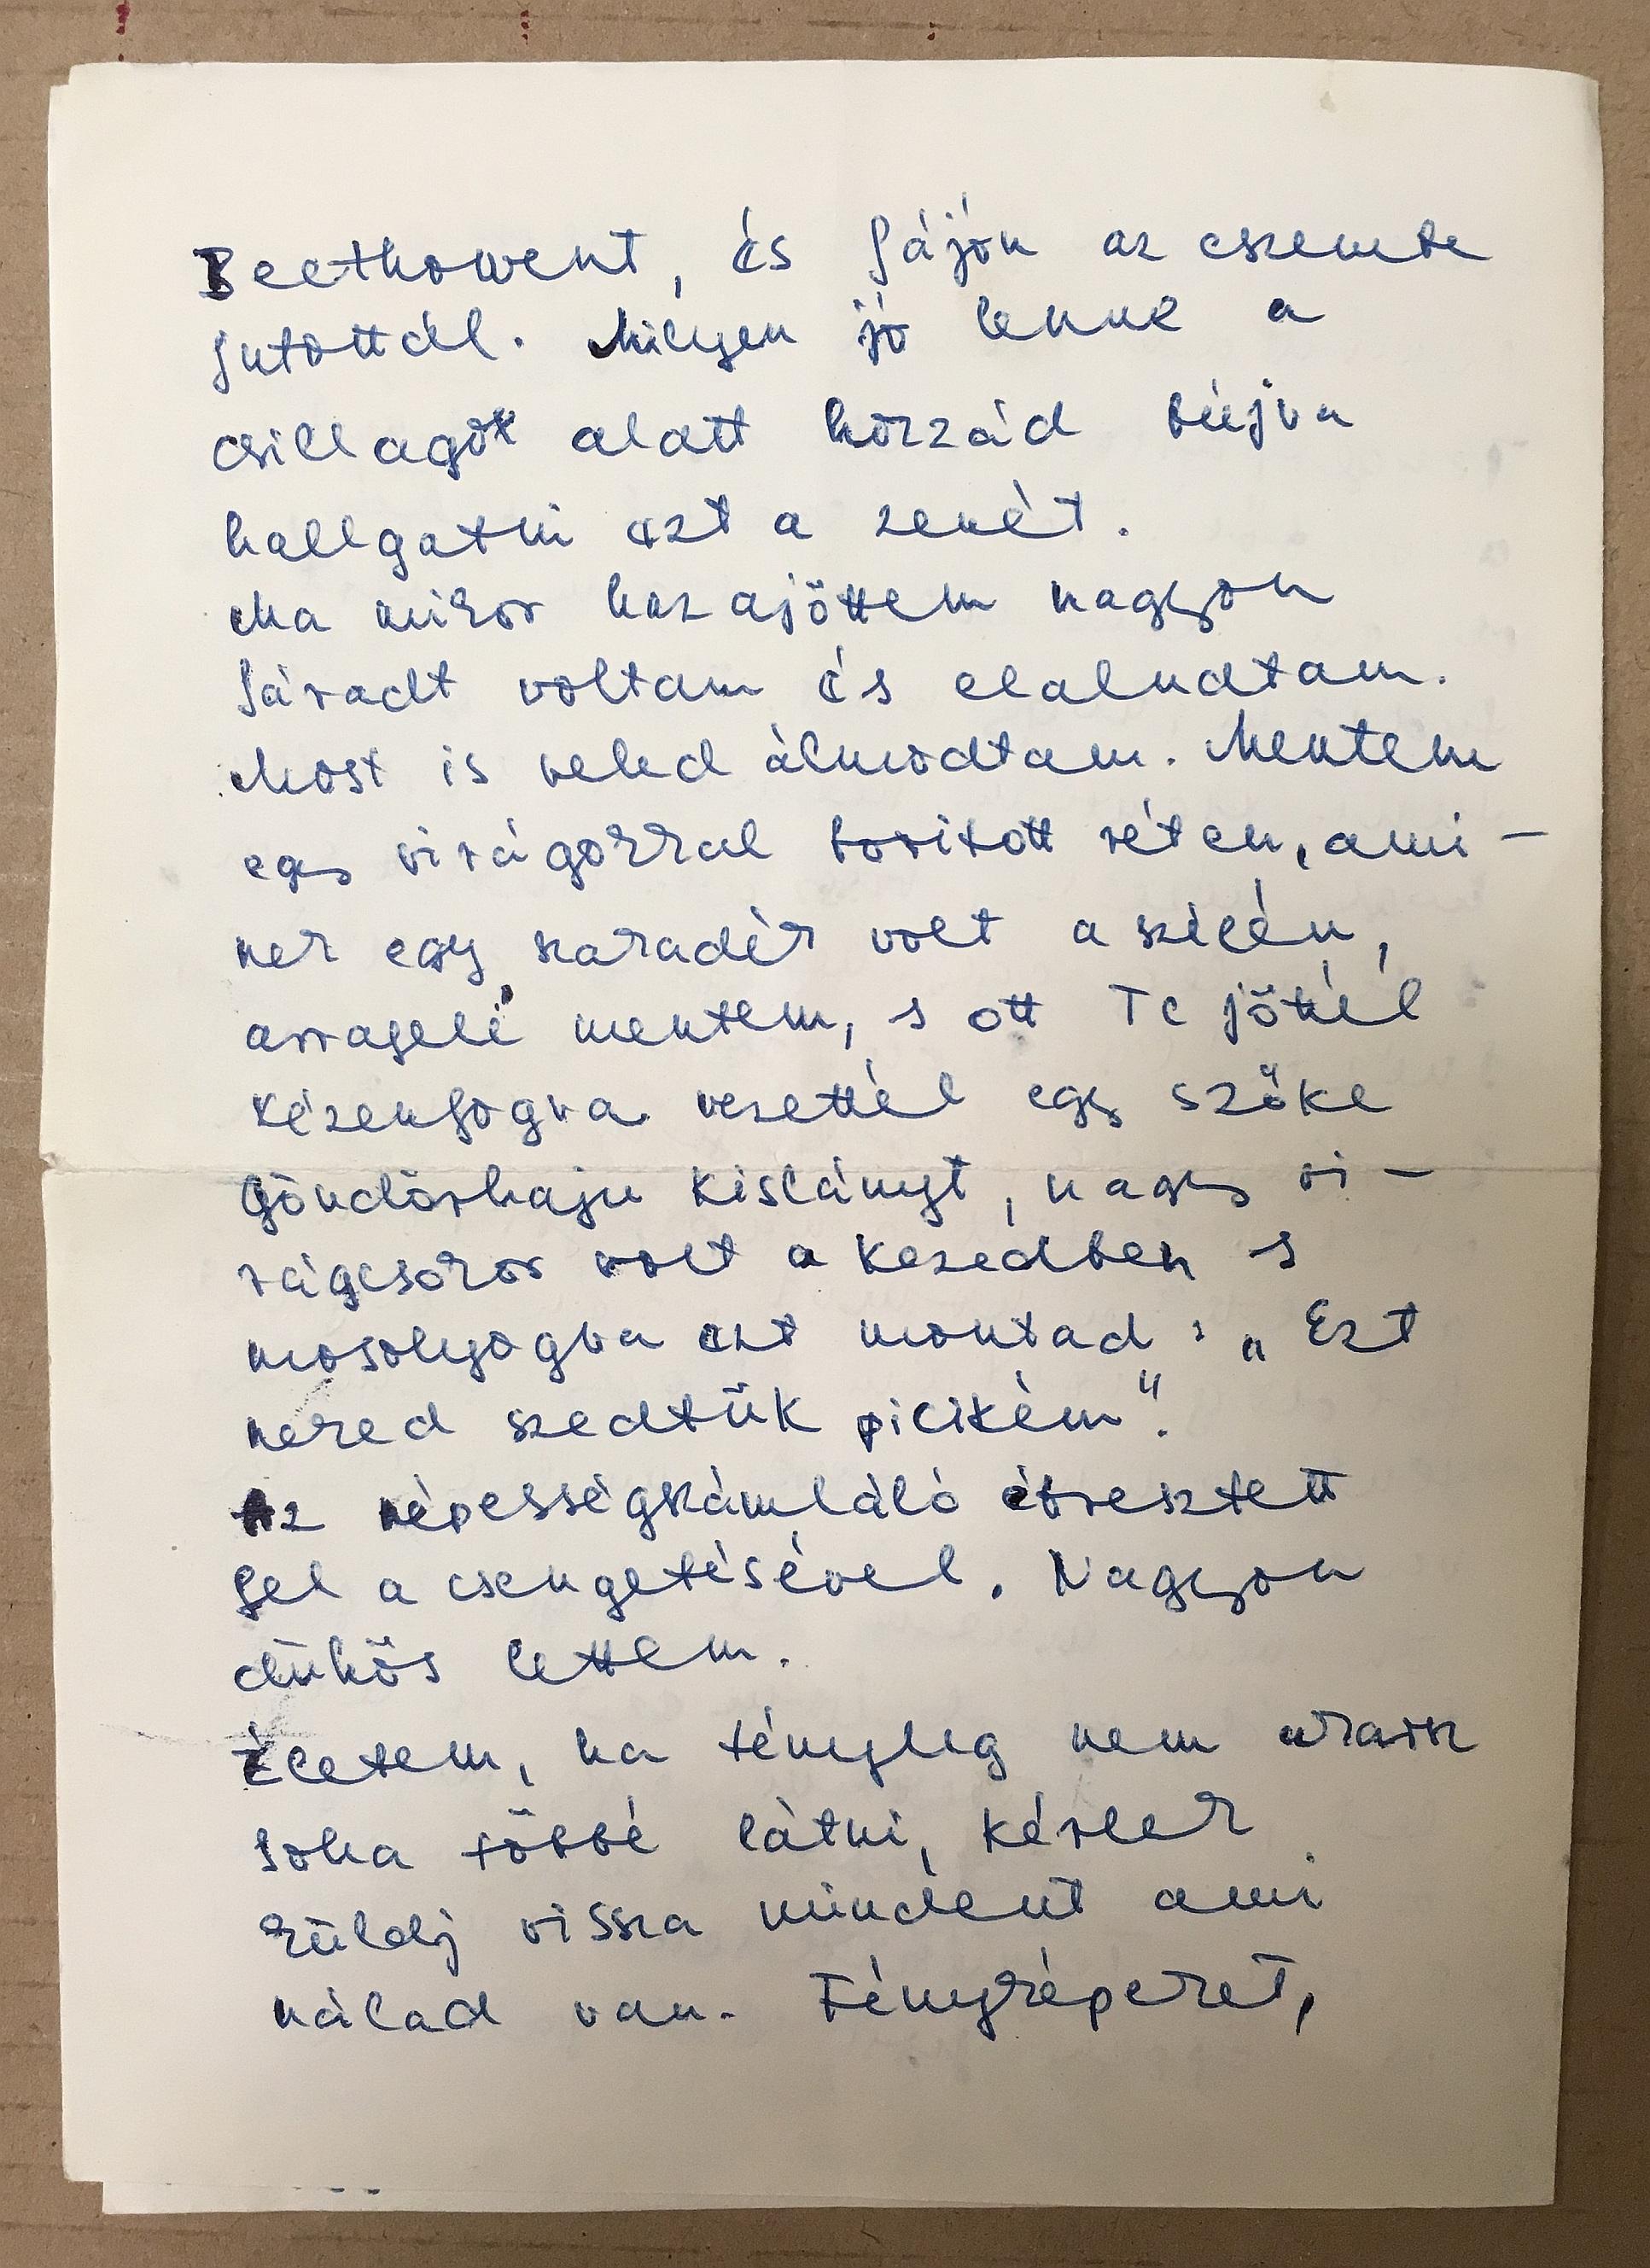 Beethowent, és fájón az eszembe
jutottál. Milyen jó lenne a
csillagok alatt hozzád bújva
hallgatni ezt a zenét.
Ma mikor hazajöttem nagyon
fáradt voltam és elaludtam.
Most is veled álmodtam. Mentem
egy virágokkal borított réten, ami-
nek egy szakadék volt a szélén,
arrafelé mentem, s ott Te jöttél
kézenfogva vezettél egy szőke
göndörhaju kislányt, nagy vi-
rágcsokor volt a kezedben s
mosolyogva ezt montad: „Ezt
neked szedtük picikém".
Az népességszámláló ébresztett
fel a csengetésével. Nagyon
dühös lettem.
Életem, ha tényleg nem akarsz
soha többé látni, kérlek
küldj vissza mindent ami
nálad van. Fényképeket,